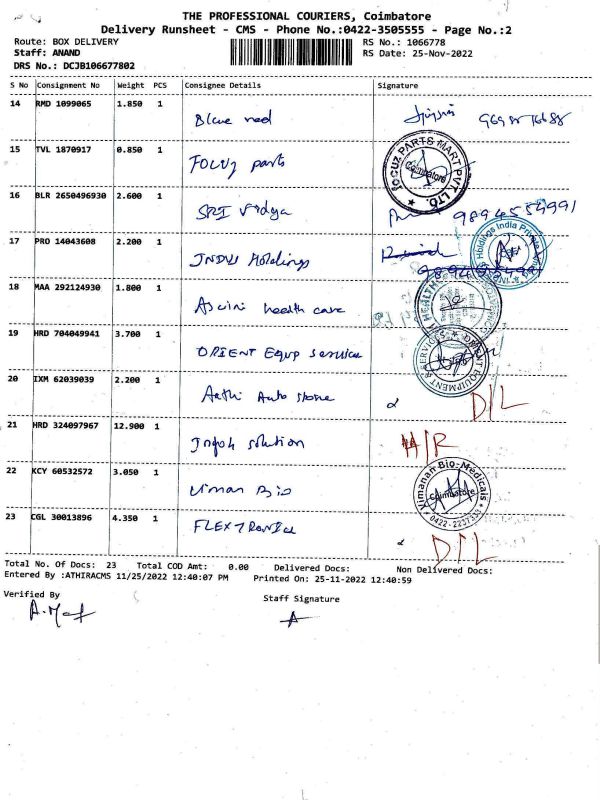 THE PROFESSIONAL COURIERS, Coimbatore
Delivery Runsheet - CMS - Phone No.:0422-3505555 - Page No.:2
Route: BOX DELIVERY
RS No.: 1066778
Staff: ANAND
RS Date: 25-Nov-2022
DRS No.: DCJB106677802
S No Consignment No Weight PCS Consignee Details Signature
14 RMD 1099065 1.850 1 Blue
15 TVL 1870917 0.850 1 FOCUZ parts
FOCUZ PARTS MART PVT. LTD. Coimbatore
16 BLR 2650496930 2.600 1 SRI Vidya 9894554991
17 PRO 14043608 2.200 1 INDUS Holdings
Holdings India Private
18 MAA 292124930 1.800 1 health care
HEALTH
19 HRD 704049941 3.700 1 ORIENT Equp service
ORIENT EQUIPMENT SERVICES
20 IXM 62039039 2.200 1 Aathi Auto store D/L
21 HRD 324097967 12.900 1 solution H/R
22 KCY 60532572 3.050 1 Viman Bio
Vimanan Bio-Medicals Coimbatore
23 CGL 30013896 4.350 1 FLEXTRONICS D/L
Total No. Of Docs: 23 Total COD Amt: 0.00 Delivered Docs: Non Delivered Docs:
Entered By :ATHIRACMS 11/25/2022 12:40:07 PM Printed On: 25-11-2022 12:40:59
Verified By
Staff Signature